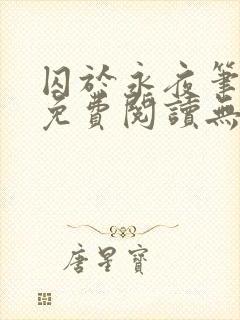 囚於永夜筆
免費閱讀無
唐星寶